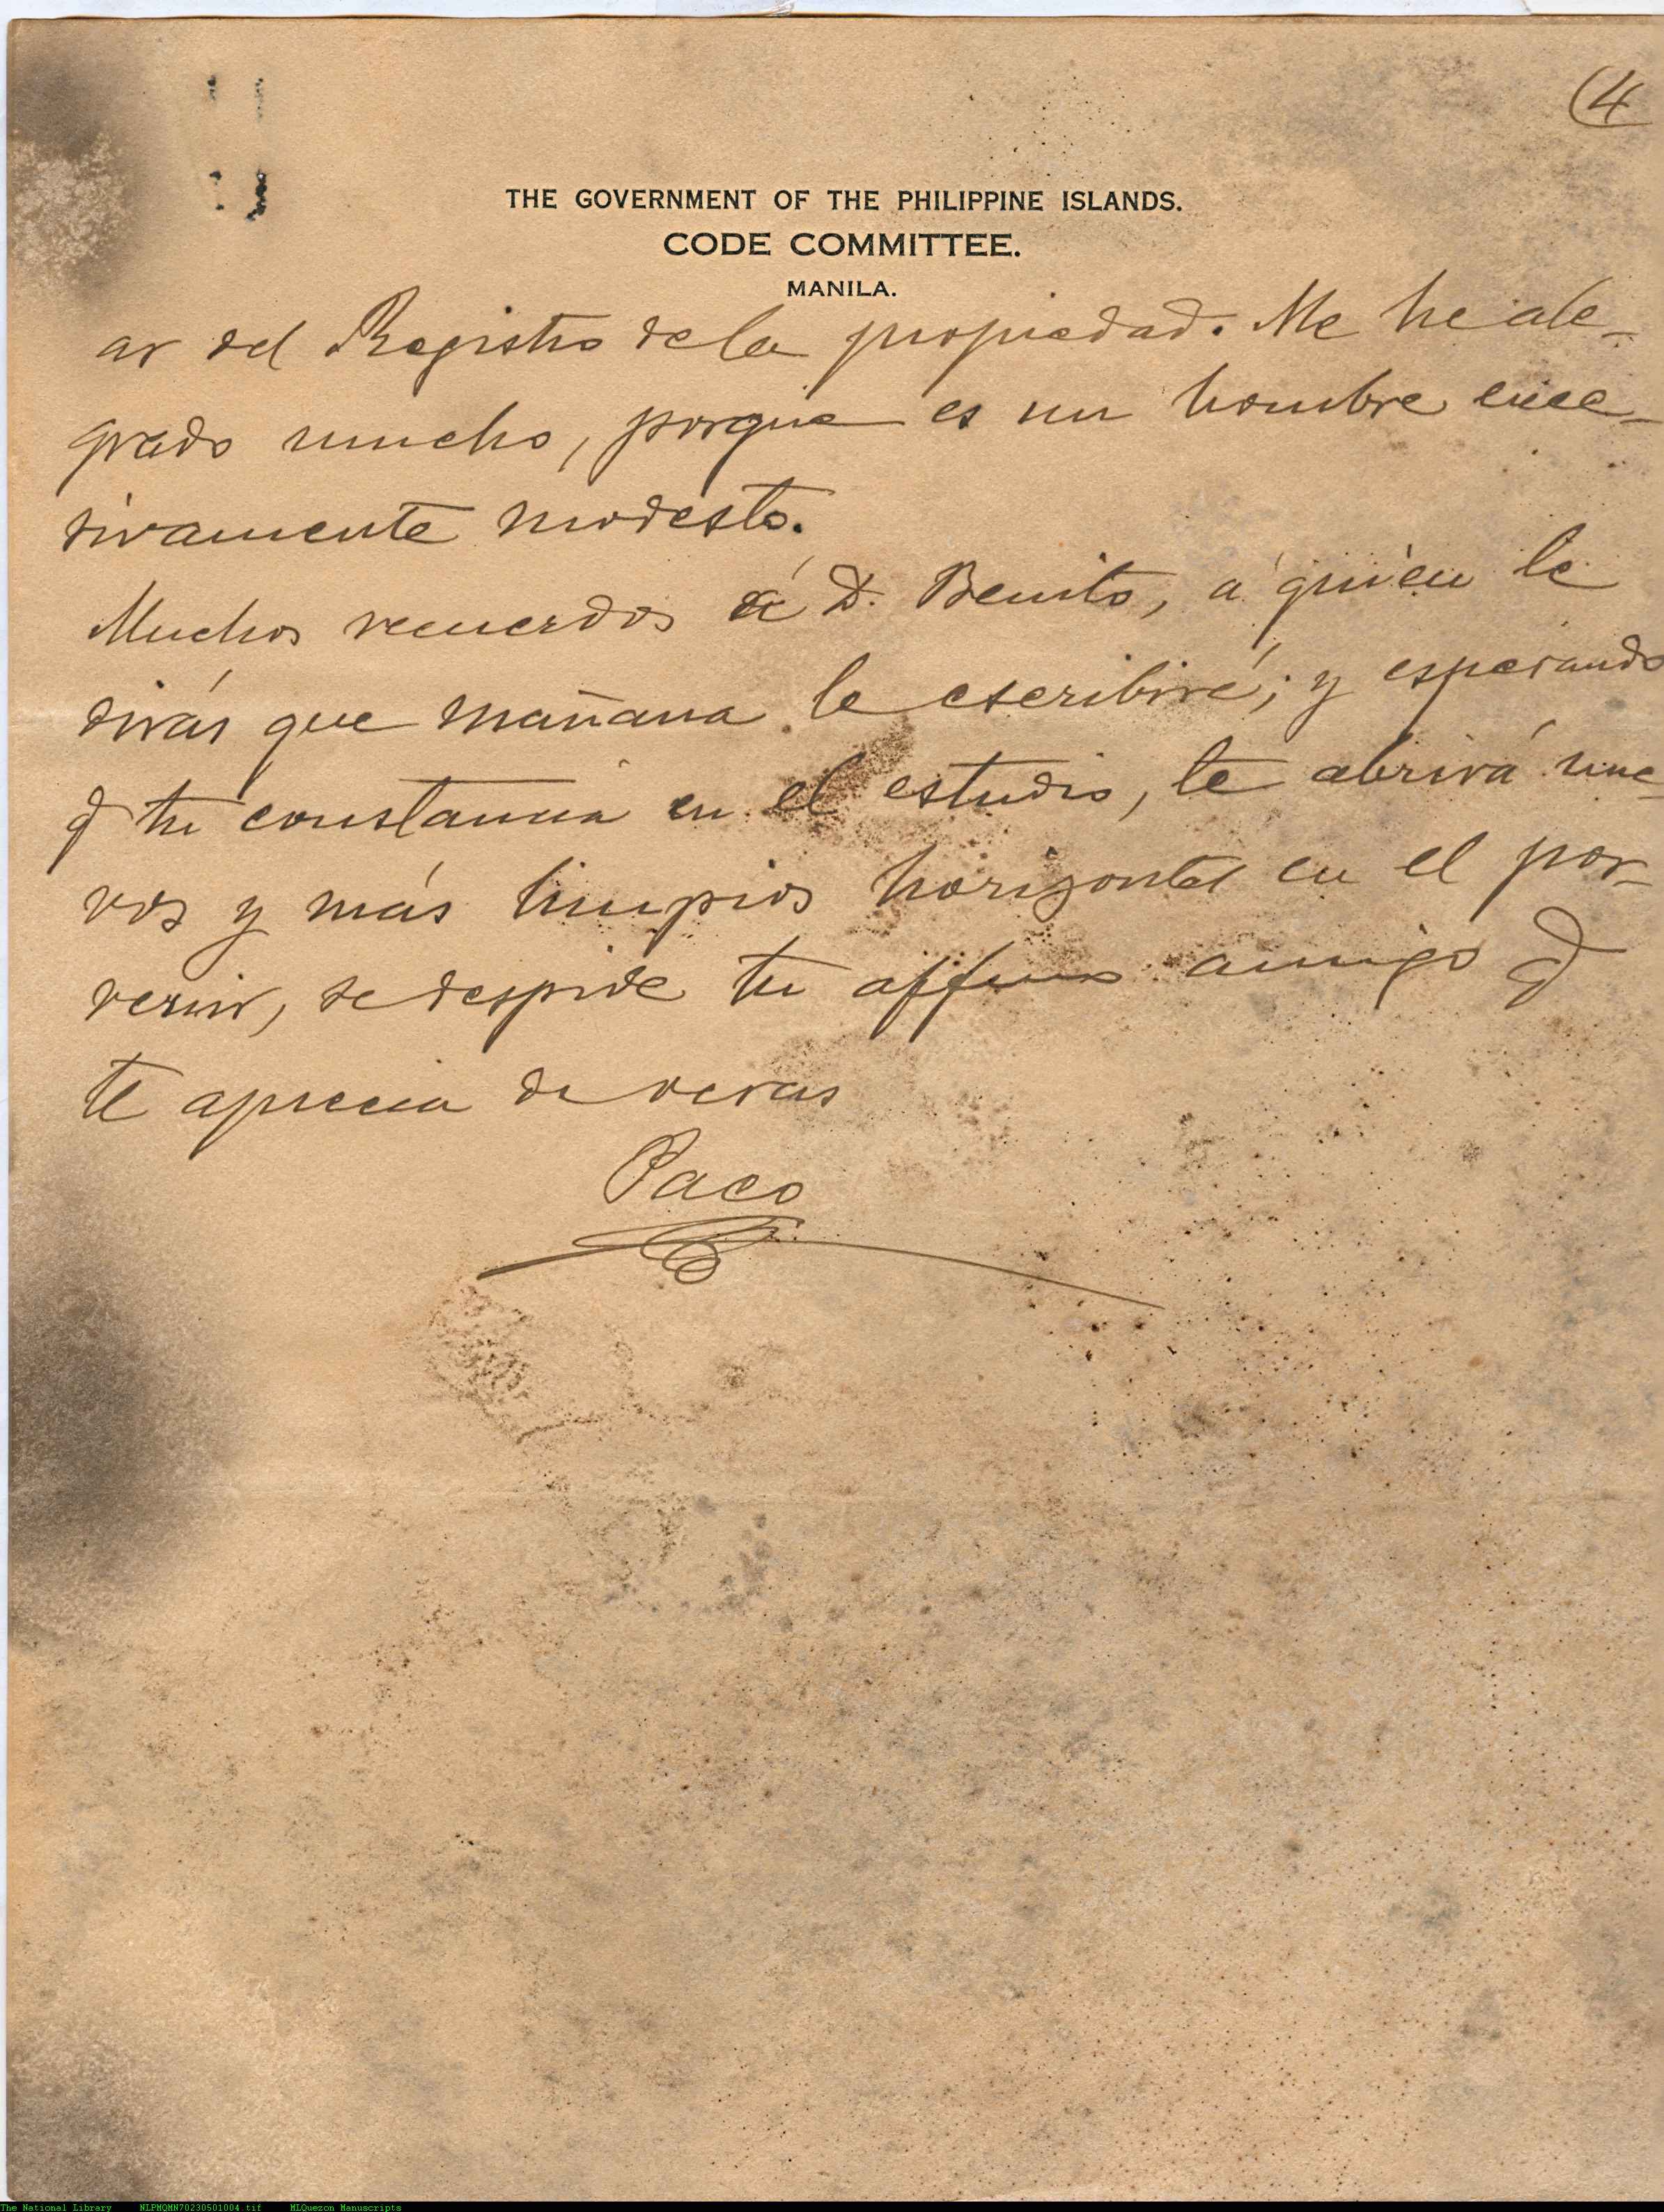 (4
THE GOVERNMENT OF THE PHILIPPINE ISLANDS.
CODE COMMITTEE.
MANILA.
ar del Registro de la propiedad. Me he ale-
grado mucho, porque es un hombre exce-
sivamente modesto.
Muchos recuerdos á D. Benito, á quién le
dirás que mañana le escribiré; y esperando
q tu constancia en el estudio, te abrirá nue-
vos y más limpios horizontes en el por-
venir, se despide tu affmo amigo q
te aprecia de veras
Paco
The National Library NLPMQMN70230501004.tif MLQuezon Manuscripts